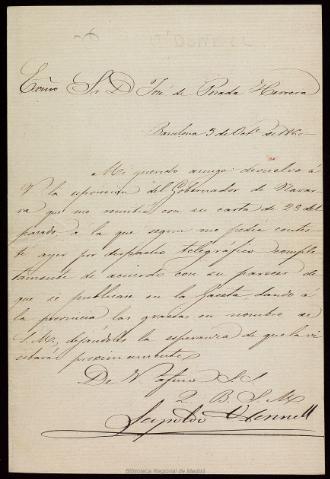 Excmo Sr. D. José de Posada Herrera
Barcelona 3 de Octe. de 1860
Mi querido amigo: devuelvo á
V. la esposicion del Gobernador de Navar
ra que me remitió con su carta de 28 del
pasado, á la que segun me pedia contes
té ayer por despacho telegráfico comple
tamente de acuerdo con su parecer de
que se publicase en la Gaceta, dando á
la provincia las gracias en nombre de
S.M., dejándoles la esperanza de que la vi
sitará proximamente.
De V. afmo. S.S.
Q. B. S. M.
Leopoldo O'Donnell
Biblioteca Regional de Madrid